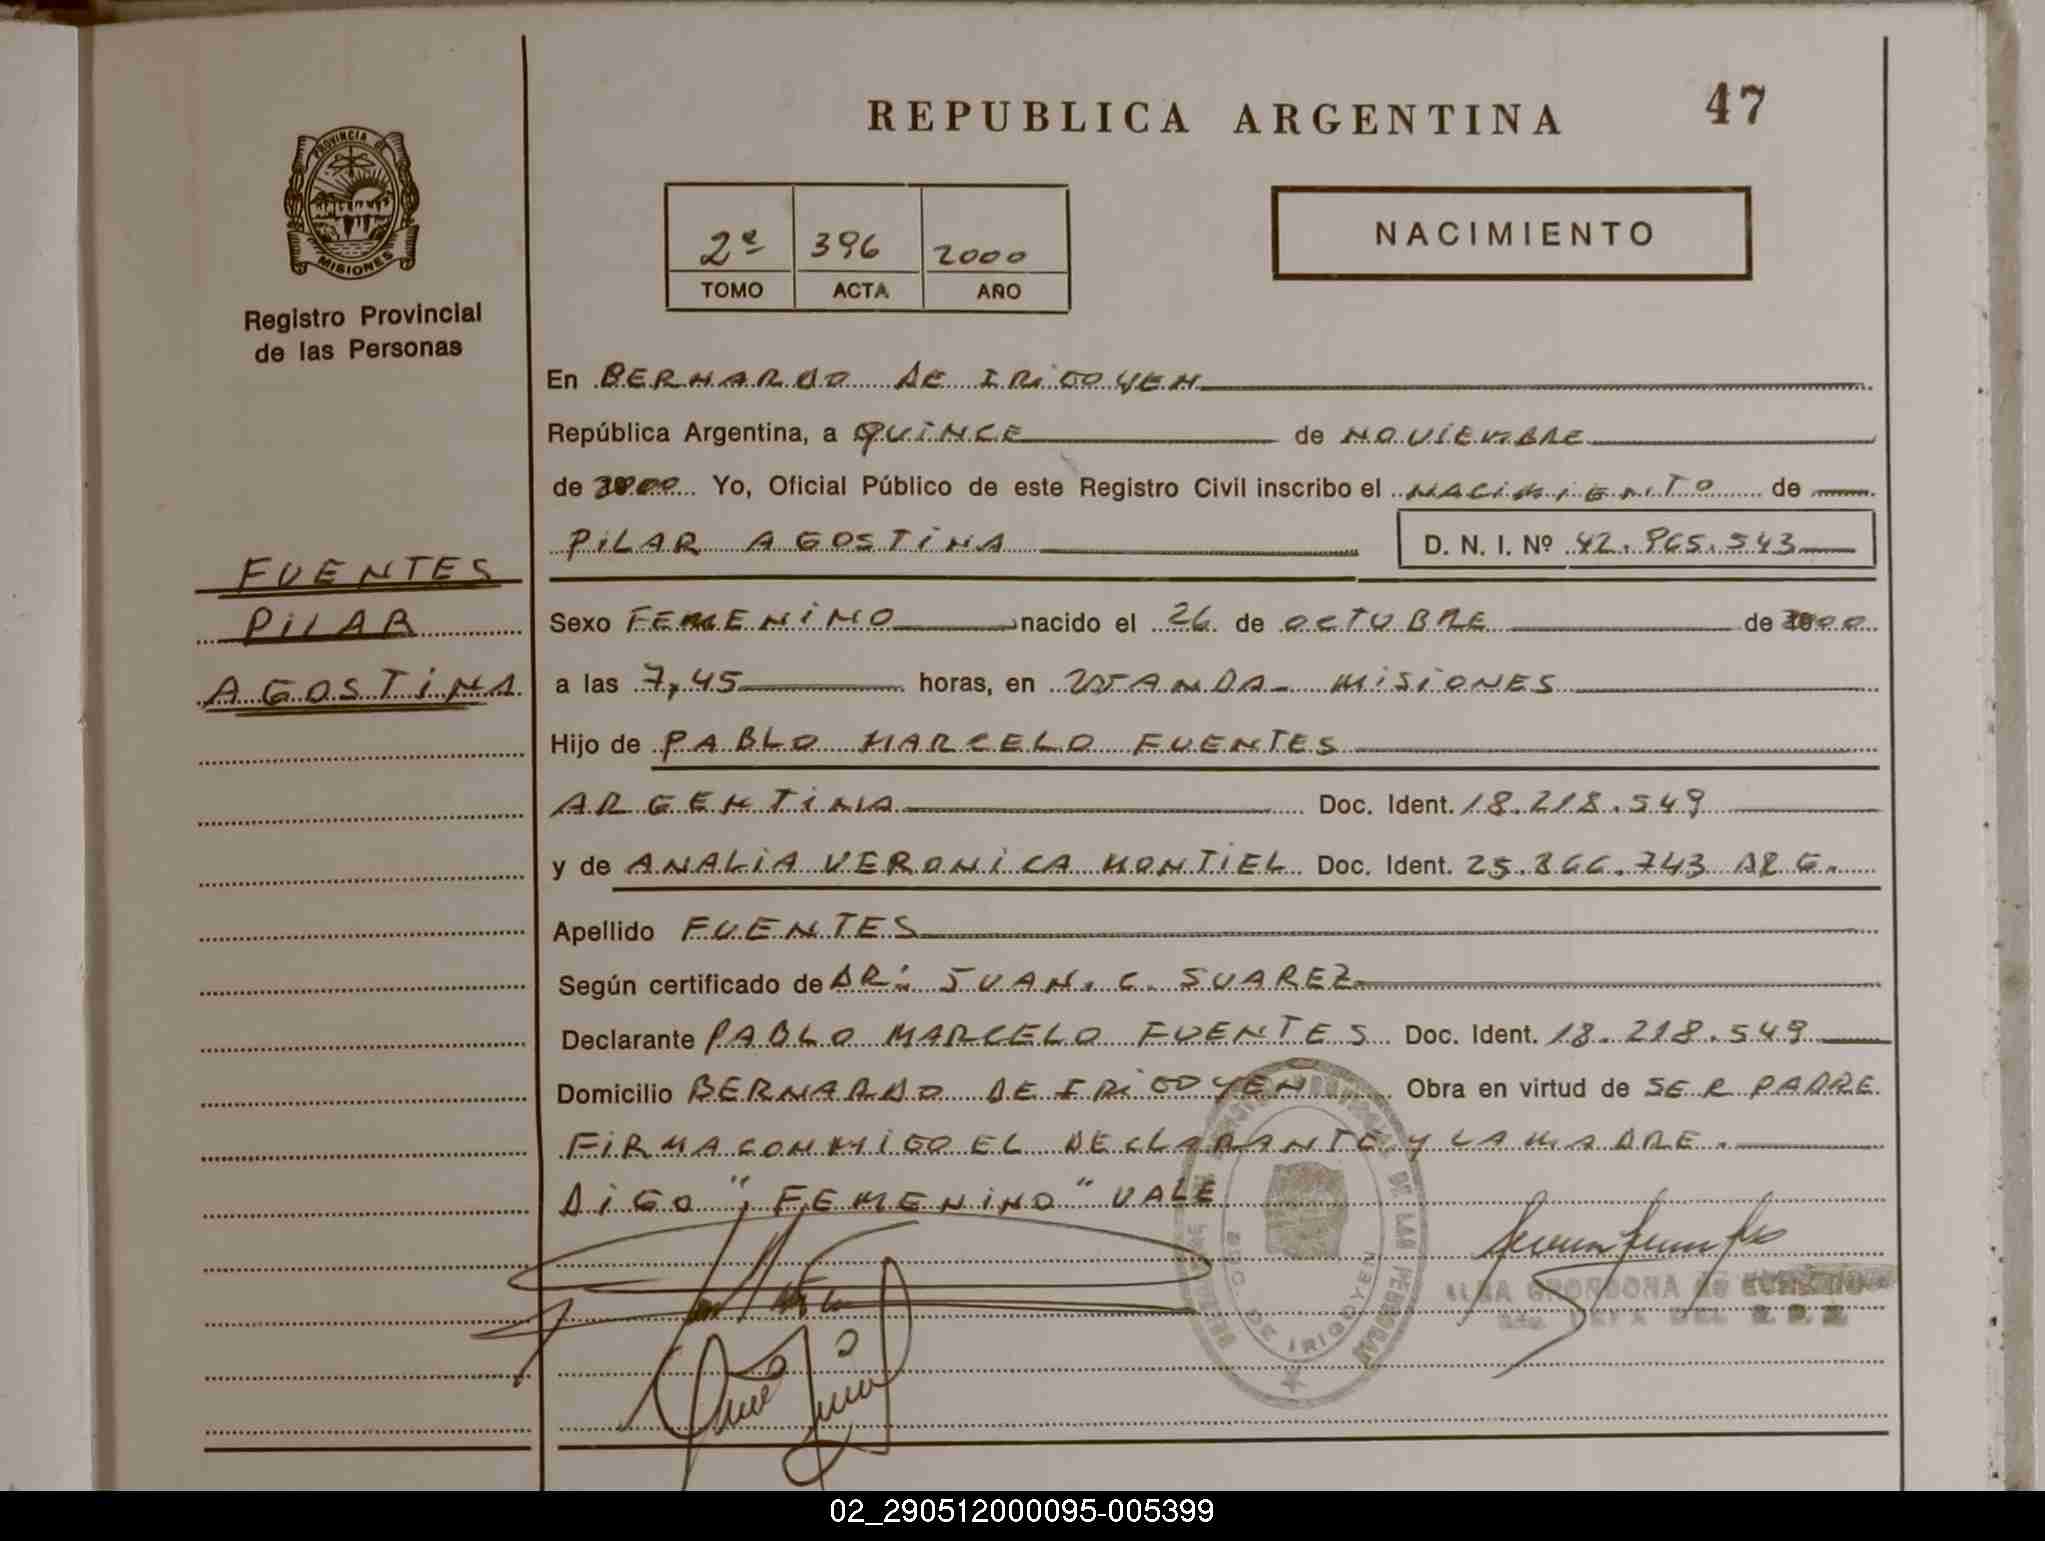 REPUBLICA ARGENTINA
47
PROVINCIA DE
MISIONES
Registro Provincial
de las Personas
2º 396 2000
TOMO ACTA AÑO
NACIMIENTO
En BERNARDO DE IRIGOYEN
República Argentina, a QUINCE de NOVIEMBRE
de 2000 Yo, Oficial Público de este Registro Civil inscribo el NACIMIENTO de
PILAR AGOSTINA D. N. I. Nº 42.965.543
FUENTES
PILAR
AGOSTINA
Sexo FEMENINO nacido el 26 de OCTUBRE de 2000
a las 7,45 horas, en WANDA - MISIONES
Hijo de PABLO MARCELO FUENTES
ARGENTINA Doc. Ident. 18.218.549
y de ANALIA VERONICA MONTIEL Doc. Ident. 25.866.743 ARG.
Apellido FUENTES
Según certificado de DR: JUAN. C. SUAREZ
Declarante PABLO MARCELO FUENTES Doc. Ident. 18.218.549
Domicilio BERNARDO DE IRIGOYEN Obra en virtud de SER PADRE
FIRMA CONMIGO EL DECLARANTE Y LA MADRE.
DIGO "FEMENINO" VALE
DE LAS PERSONAS
BDO. DE IRIGOYEN
02_290512000095-005399